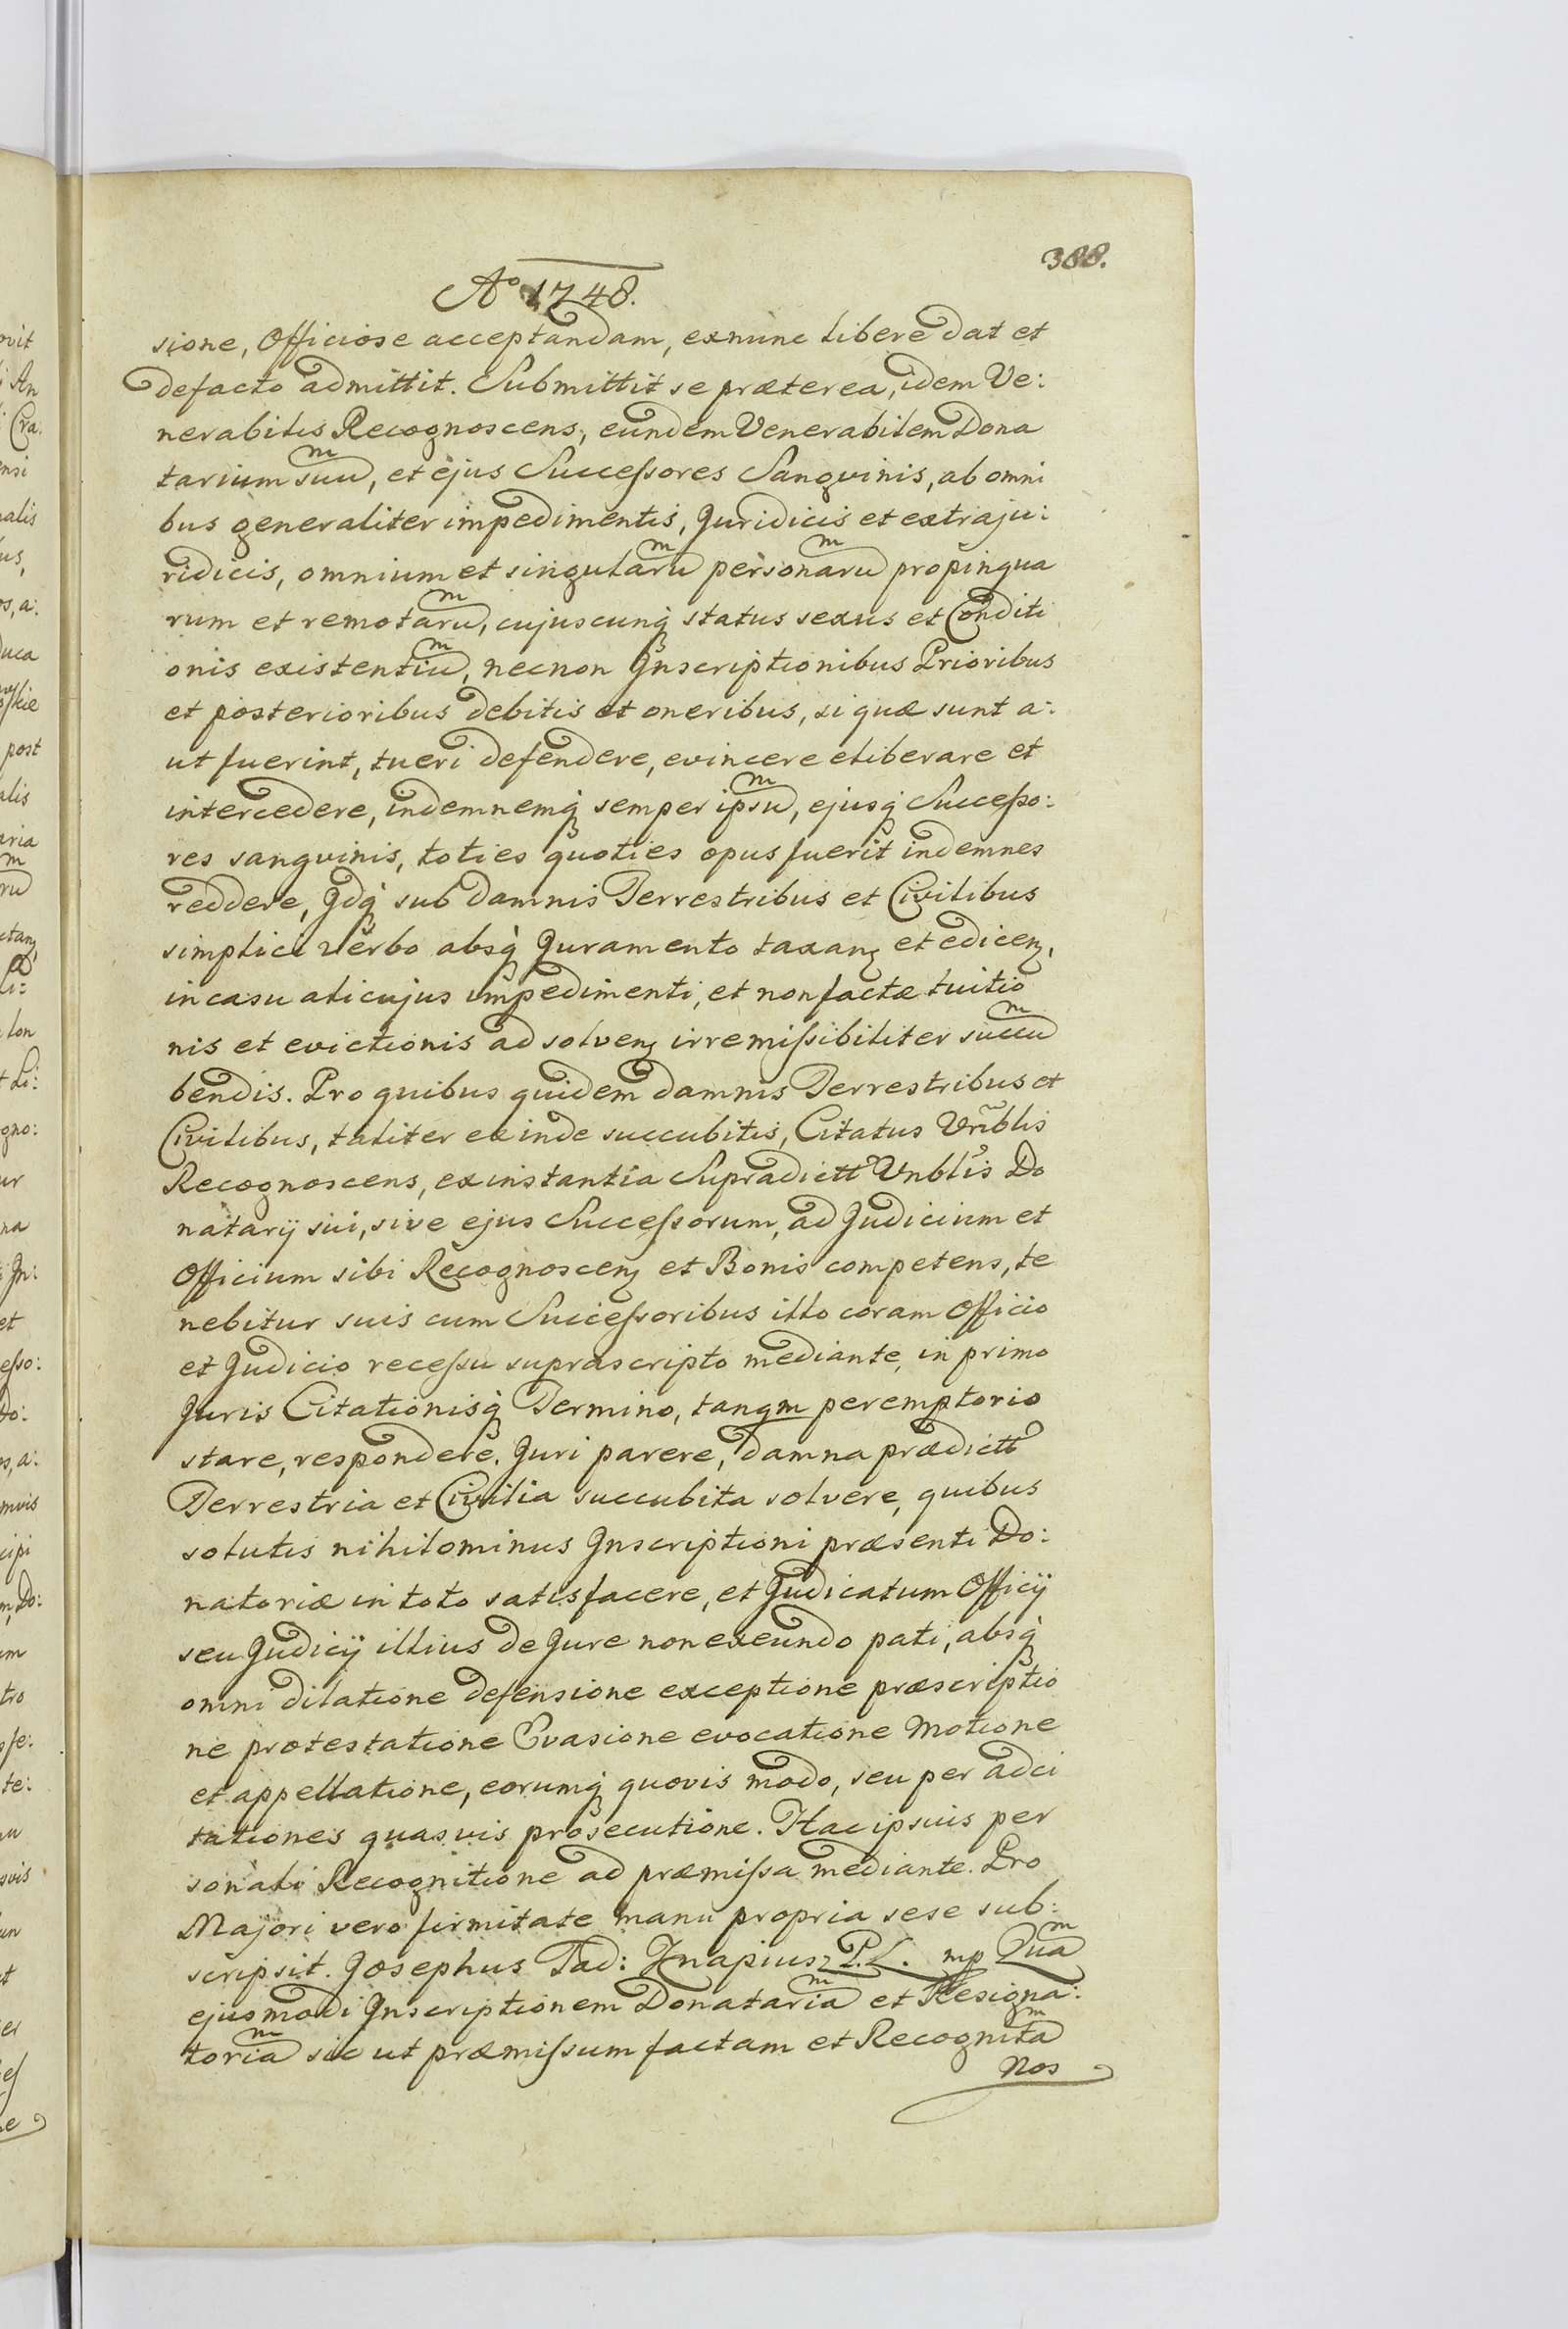 388.
Aº 1748.
sione, Officiose acceptandam, exnunc libere dat et
defacto admittit. Submittit se præterea, idem Ve:
nerabilis Recognoscens, eundem Venerabilem Dona
tarium suũ, et ejus Successores Sangvinis, ab omni
bus generaliter impedimentis, Juridicis et extraju:
ridicis, omnium et singularũ personarũ propinqua
rum et remotarũ, cujuscunq́ status sexus et Conditi
onis existentiũ, necnon Jnscriptionibus Prioribus
et posterioribus debitis et oneribus, si quæ sunt a:
ut fuerint, tueri defendere, evincere eliberare et
intercedere, indemnemq́ semper ipsũ, ejusq́ Successo:
res sangvinis, toties quoties opus fuerit indemnes
reddere, Jdq́ sub damnis Terrestribus et Civilibus
simplici verbo absq́ Juramento taxanꝫ et edicenꝫ,
in casu alicujus impedimenti, et non factæ tuitio
nis et evictionis ad solvenꝫ irremissibiliter succũ
bendis. Pro quibus quidem damnis Terrestribus et
Civilibus, taliter exinde succubitis, Citatus Vñblis
Recognoscens, ex instantia Supradictt Vnblis Do
natarij sui, sive ejus Successorum, ad Judicium et
Officium sibi Recognoscenꝫ et Bonis competens, te
nebitur suis cum Successoribus illo coram Officio
et Judicio recessu suprascripto mediante, in primo
Juris Citationisq́ Termino, tanqm peremptorio
stare, respondere. Juri parere, damna prædictt
Terrestria et Civilia succubita solvere, quibus
solutis nihilominus Jnscriptioni præsenti Do:
natoriæ in toto satisfacere, et Judicatum Officij
seu Judicij illius de Jure non exeundo pati, absq́
omni dilatione defensione exceptione præscriptio
ne protestatione Evasione evocatione Motione
et appellatione, eorumq́ quovis modo, seu per adci
tationes quasvis prosecutione. Hac ipsius per
sonali Recognitione ad præmissa mediante. Pro
Majori vero firmitate manu propria sese sub:
scripsit. Josephus Tad: Knapiusz P. L. mp Quã
ejusmodi Jnscriptionem Donatariã et Resigna:
toriã sic ut præmissum factam et Recognitã
Nos